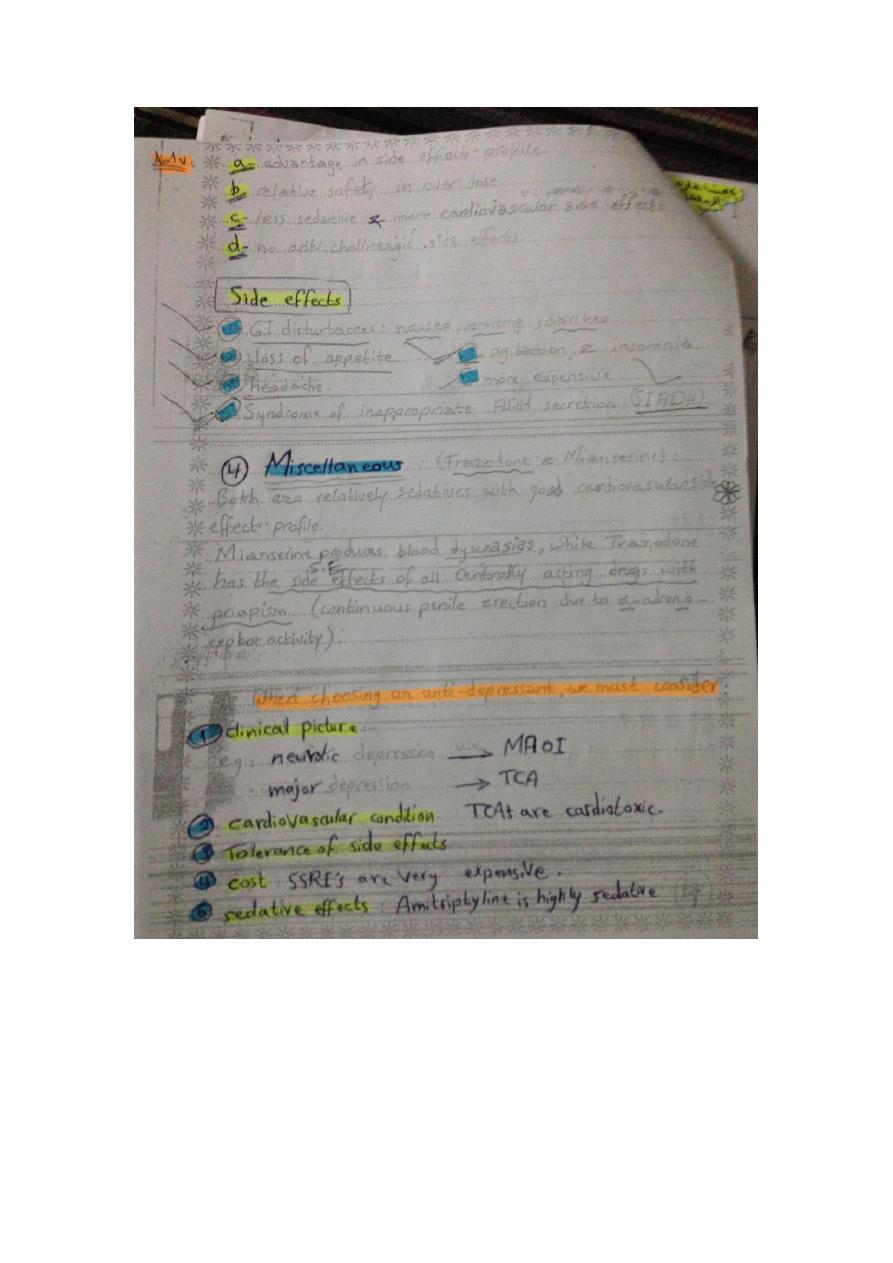 a- advantage in side effect profile.
b relative safety in over dose
c- less sedative & more cardiovascular side effects
d- no anti cholinergic side effects.
Side effects
GI disturbances: nausea, vomiting, diarrhea
loss of appetite agitation & insomnia
headache. more expensive
Syndrome of inappropriate ADH secretion (SIADH)
4 Miscellaneous : (Trazodone & Mianserine):
Both are relatively sedatives with good cardiovascular side
effect profile.
Mianserine produces blood dyscrasias, while Trazodone
S.E
has the side effects of all centrally acting drugs with
priapism (continuous penile erection due to α-adreno-
ceptor activity).
When choosing an anti-depressant, we must consider
1 clinical picture
e.g.: neurotic depression → MAOI
major depression → TCA
2 cardiovascular condition TCAs are cardiotoxic.
3 Tolerance of side effects
4 cost SSRI's are very expensive.
5 sedative effects: Amitriptyline is highly sedative